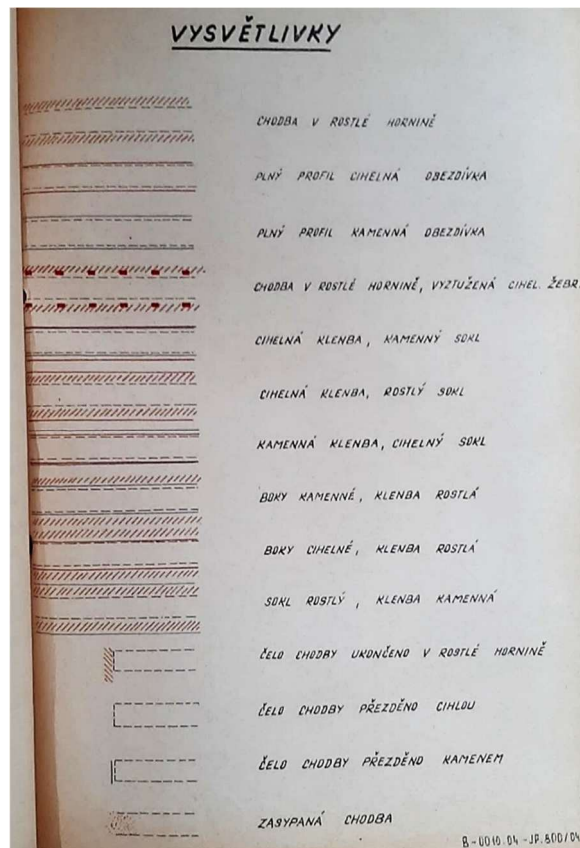 VYSVĚTLIVKY
CHODBA V ROSTLÉ HORNINĚ
PLNÝ PROFIL CIHELNÁ OBEZDÍVKA
PLNÝ PROFIL KAMENNÁ OBEZDÍVKA
CHODBA V ROSTLÉ HORNINĚ, VYZTUŽENÁ CIHEL. ŽEBR.
CIHELNÁ KLENBA, KAMENNÝ SOKL
CIHELNÁ KLENBA, ROSTLÝ SOKL
KAMENNÁ KLENBA, CIHELNÝ SOKL
BOKY KAMENNÉ, KLENBA ROSTLÁ
BOKY CIHELNÉ, KLENBA ROSTLÁ
SOKL ROSTLÝ, KLENBA KAMENNÁ
ČELO CHODBY UKONČENO V ROSTLÉ HORNINĚ
ČELO CHODBY PŘEZDĚNO CIHLOU
ČELO CHODBY PŘEZDĚNO KAMENEM
ZASYPANÁ CHODBA
B-0010.04-JP.500/04